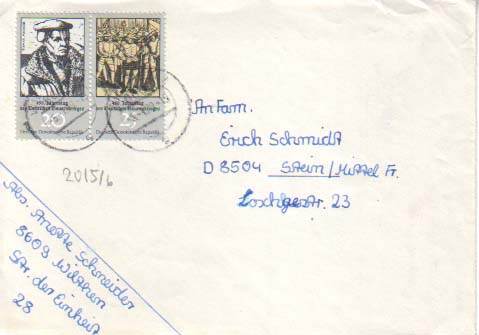 450. Jahrestag
des Deutschen Bauernkrieges
20
Deutsche Demokratische Republik
450. Jahrestag
des Deutschen Bauernkrieges
25
Deutsche Demokratische Republik
An Fam.
Erich Schmidt
D 8504 Stein/Mittel Fr.
23
2015/6
Abs. Anette Schneider
8609 Wilthen
Str. der Einheit
28